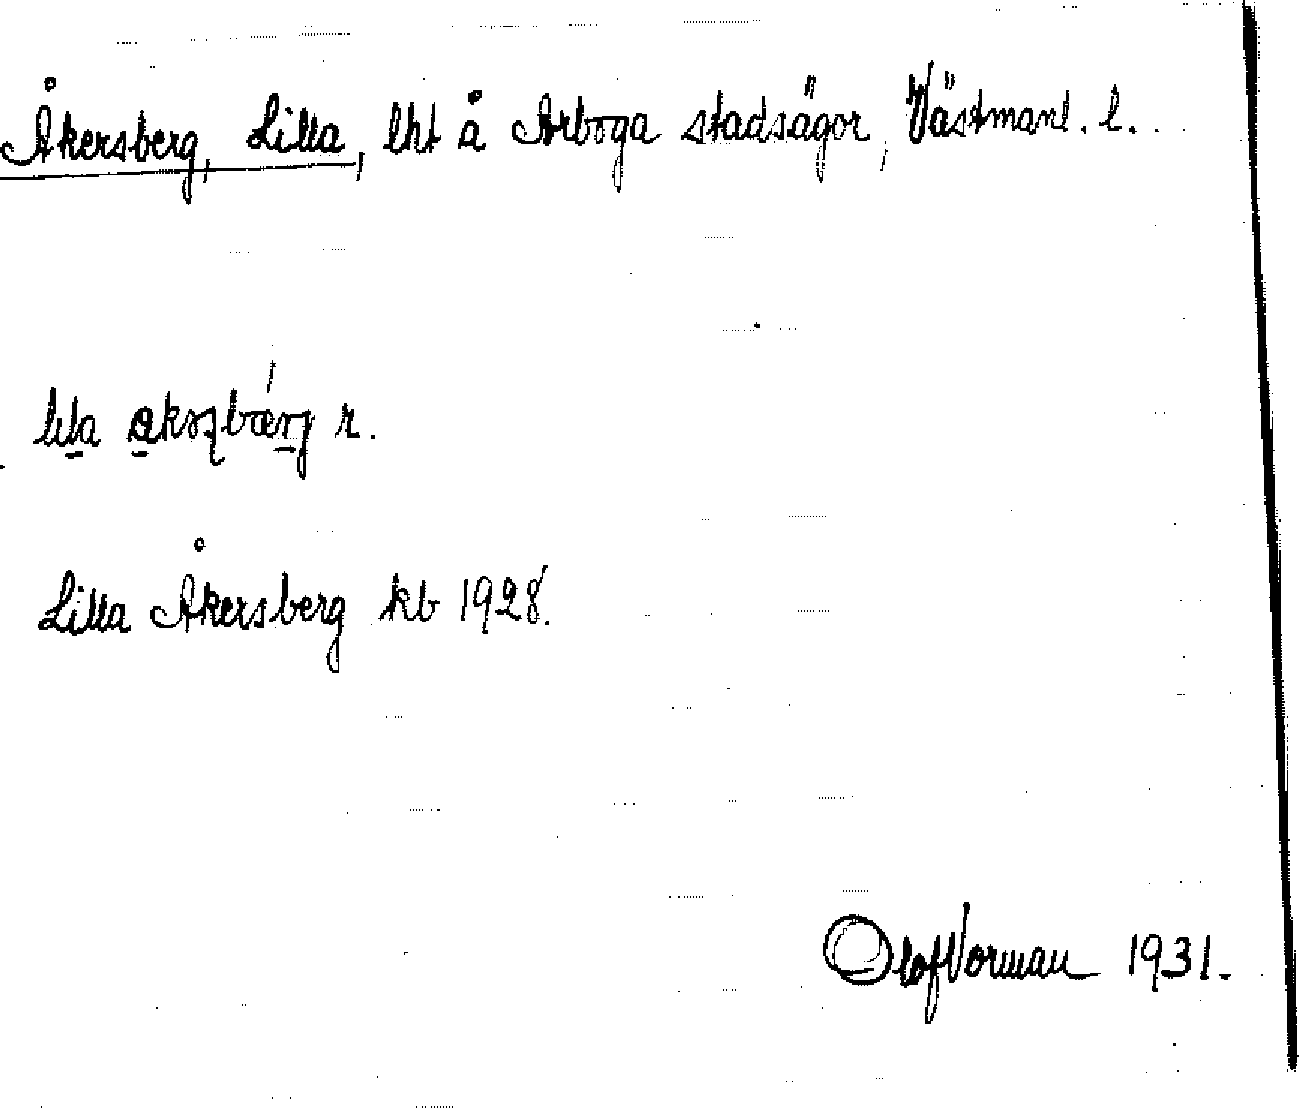 Åkersberg, Lilla, lht å Arboga stadsägor, Västmanl. l.
lila r.
Lilla Åkersberg kb 1928.
Olof Vorman 1931.